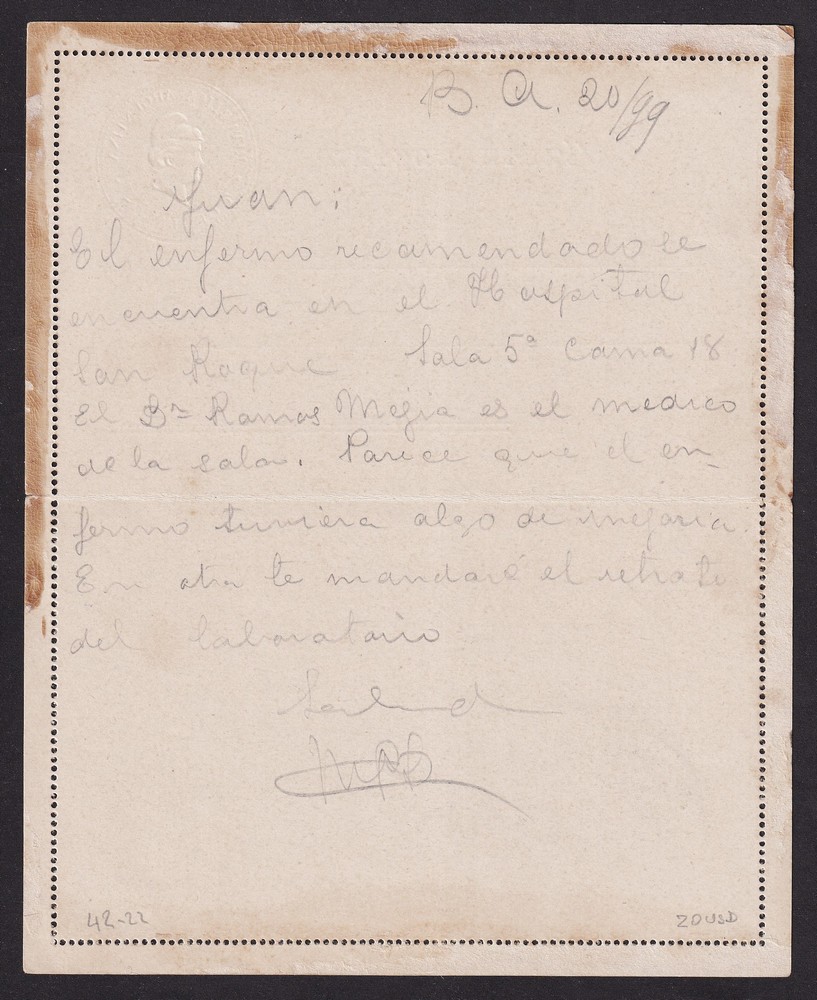 B. A. 20/99
Juan:
El enfermo recamendado se
encuentra en el Hospital
San Roque Sala 5ª Cama 18
El Dr Ramos Megia es el medico
de la sala. Parece que el en-
fermo tuviera algo de mejoria.
En otra te mandaré el retrato
del laboratorio
Salud
42-22
20USD